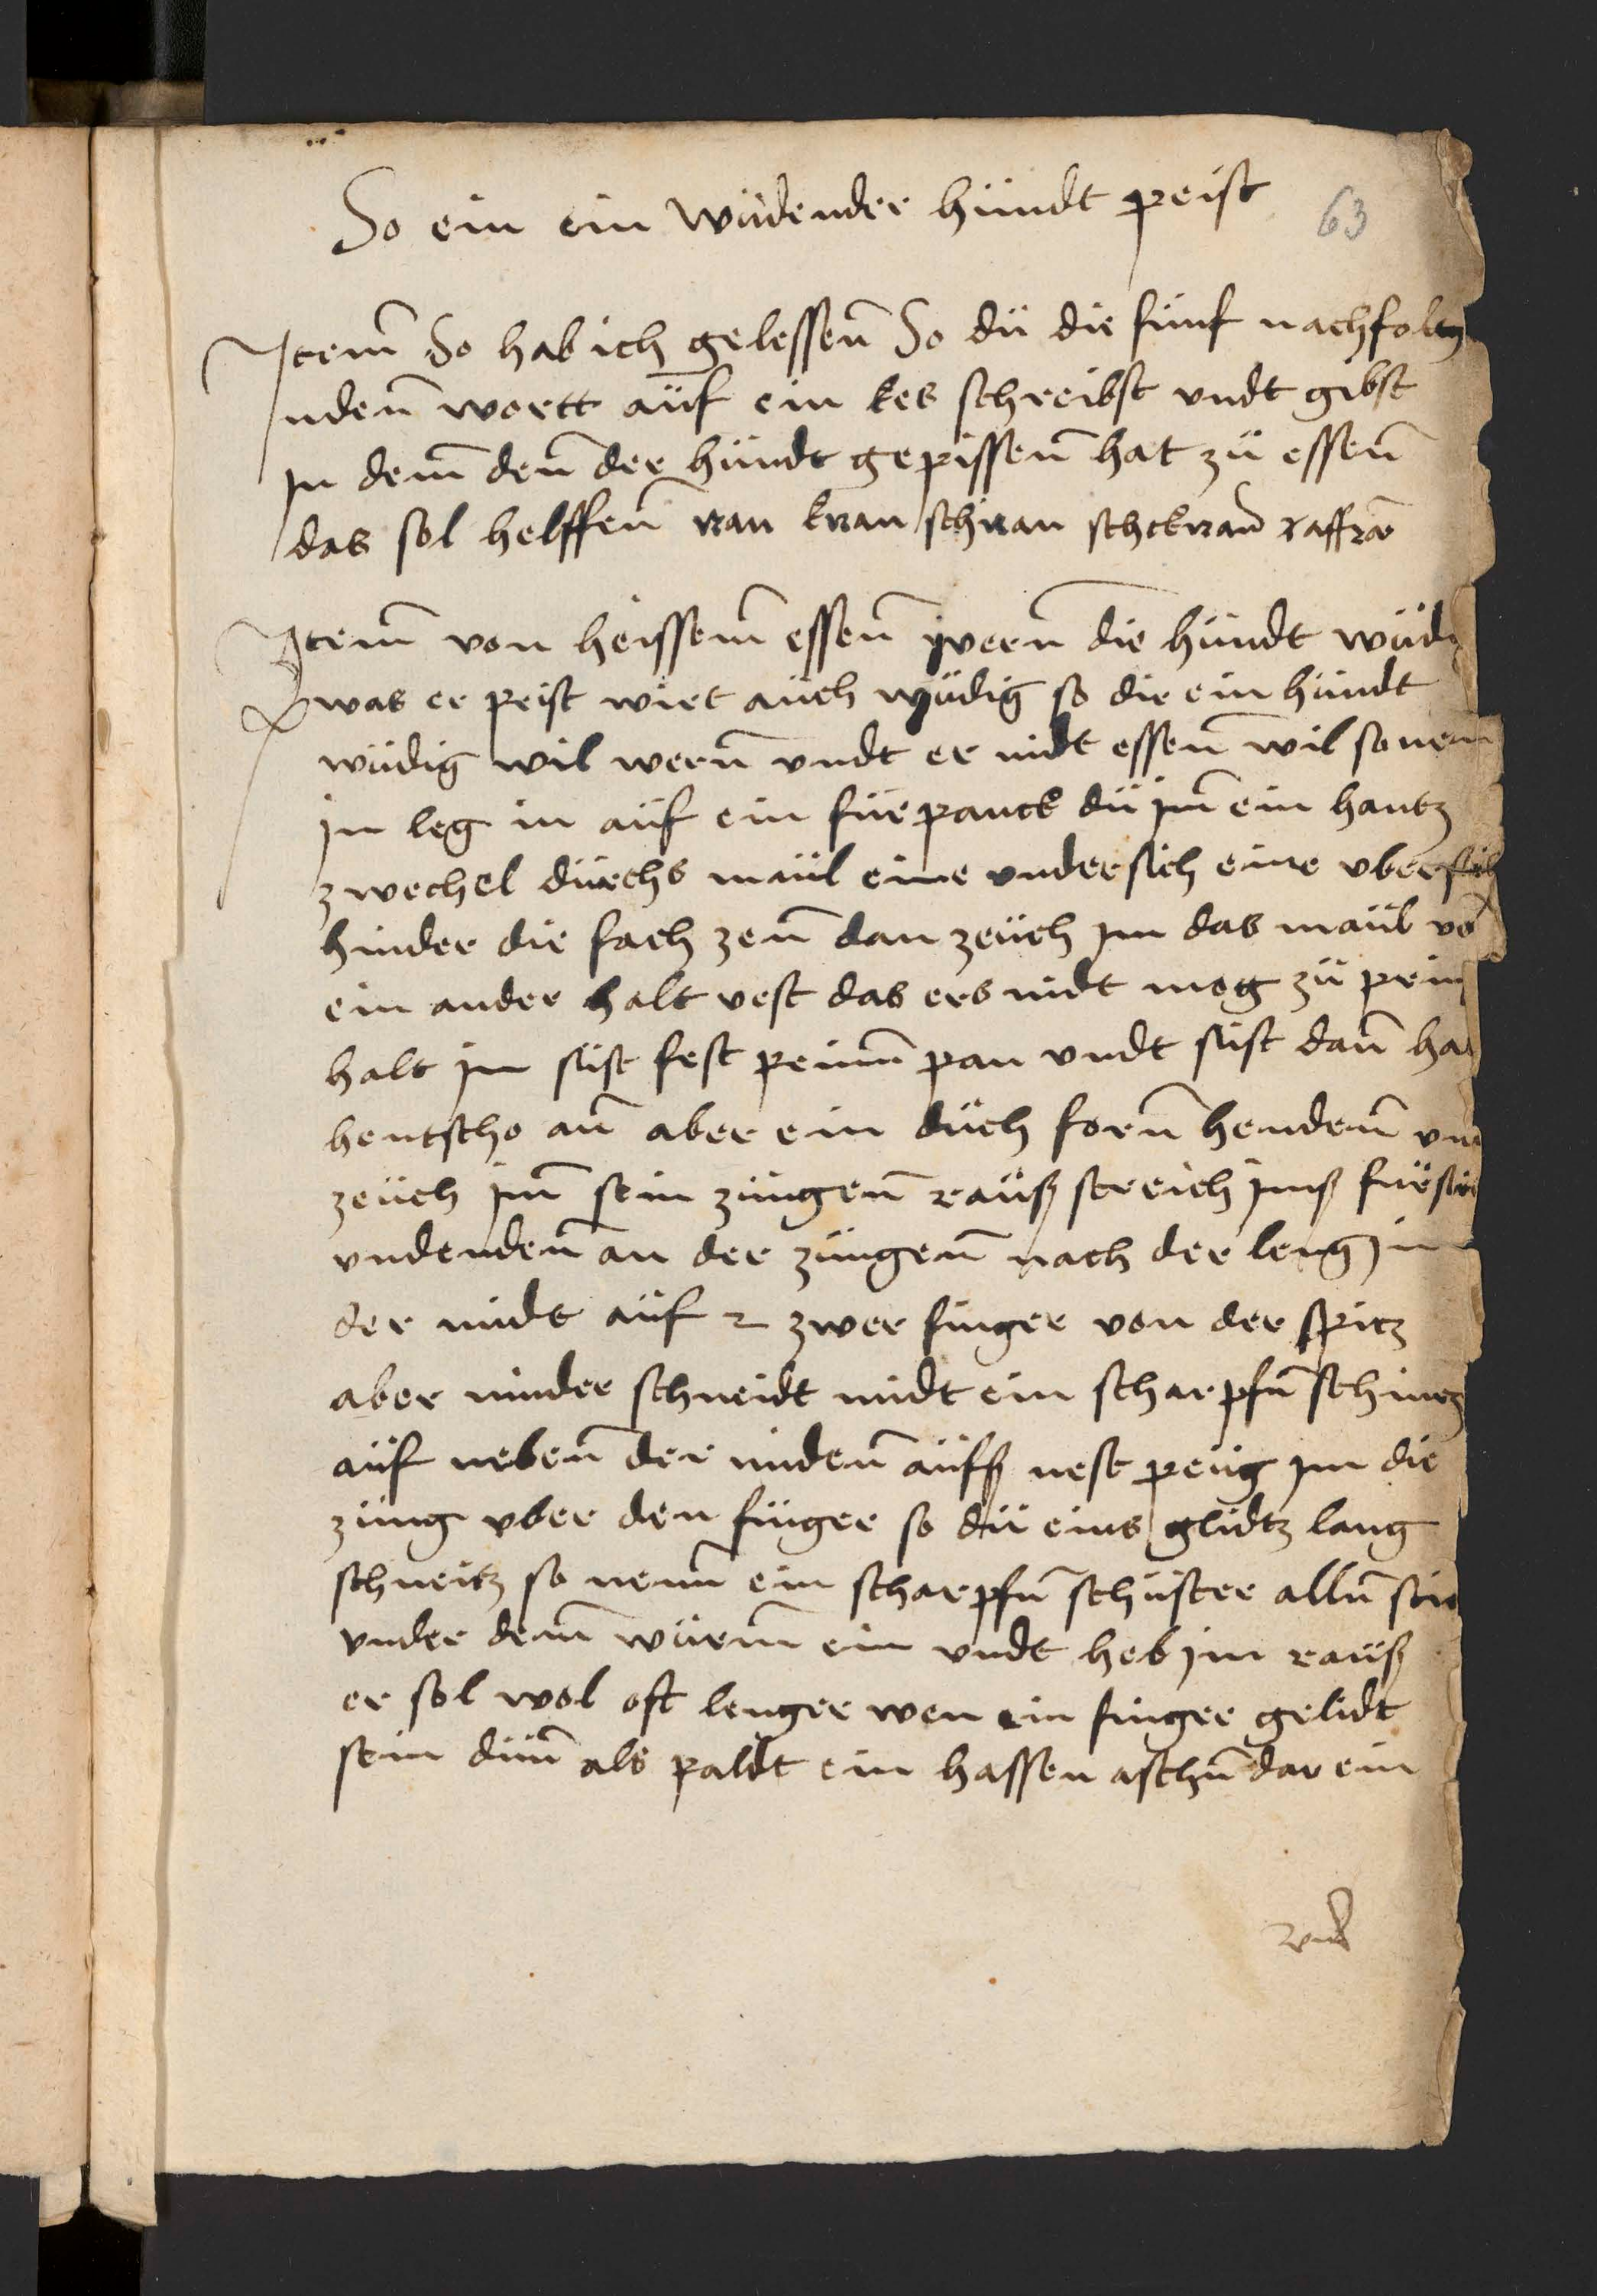 So ein ein wüdender hündt peist
63
Item̄ So hab ich gelessen̄ So dü die fünf nachfolg
nden̄ wortt aüf ein kes schreibst vndt gibst
in dem̄ den̄ der hündt gepissen̄ hat zü essen̄
das sol helffen̄ ran kran schran schckran̄
Item̄ von heissem̄ essen̄ wern̄ die hündt wüdi
was er peist wirt aüch wüdig so dir ein hündt
wüdig wil wern̄ vndt er nidt essen̄ wil so nem
in leg in aüf ein fürpanck dü im̄ ein hantz
zwechel dürchs maül eine vndersich eine vbersich
hinder die fach zen̄ dan zeüch im das maül vō
ein ander halt vest das ers nidt mog zü prin
halt in süst fest peinn̄ pan vndt süst dan̄ ha
hentscho an̄ aber ein düch forn̄ henden̄ vn
zeüch im̄ sein züngen̄ raüß streich imß
vndenden̄ an der züngen̄ nach der leng in
der midt aüf 2 zwer finger von der spitz
aber minder schneidt midt ein scharpfn̄
aüf neben̄ der midenn̄ aüfß nest peüg im die
züng vber den finger so dü eins glidtz lang
schneitz so nem̄ ein scharpfn̄ schüster alln̄
vnder dem̄ würm̄ ein vndt heb in raüß
er sol wol oft lenger wen ein finger gelidt
sein düm̄ als paldt ein hassen aschn̄ dar ein
vnd